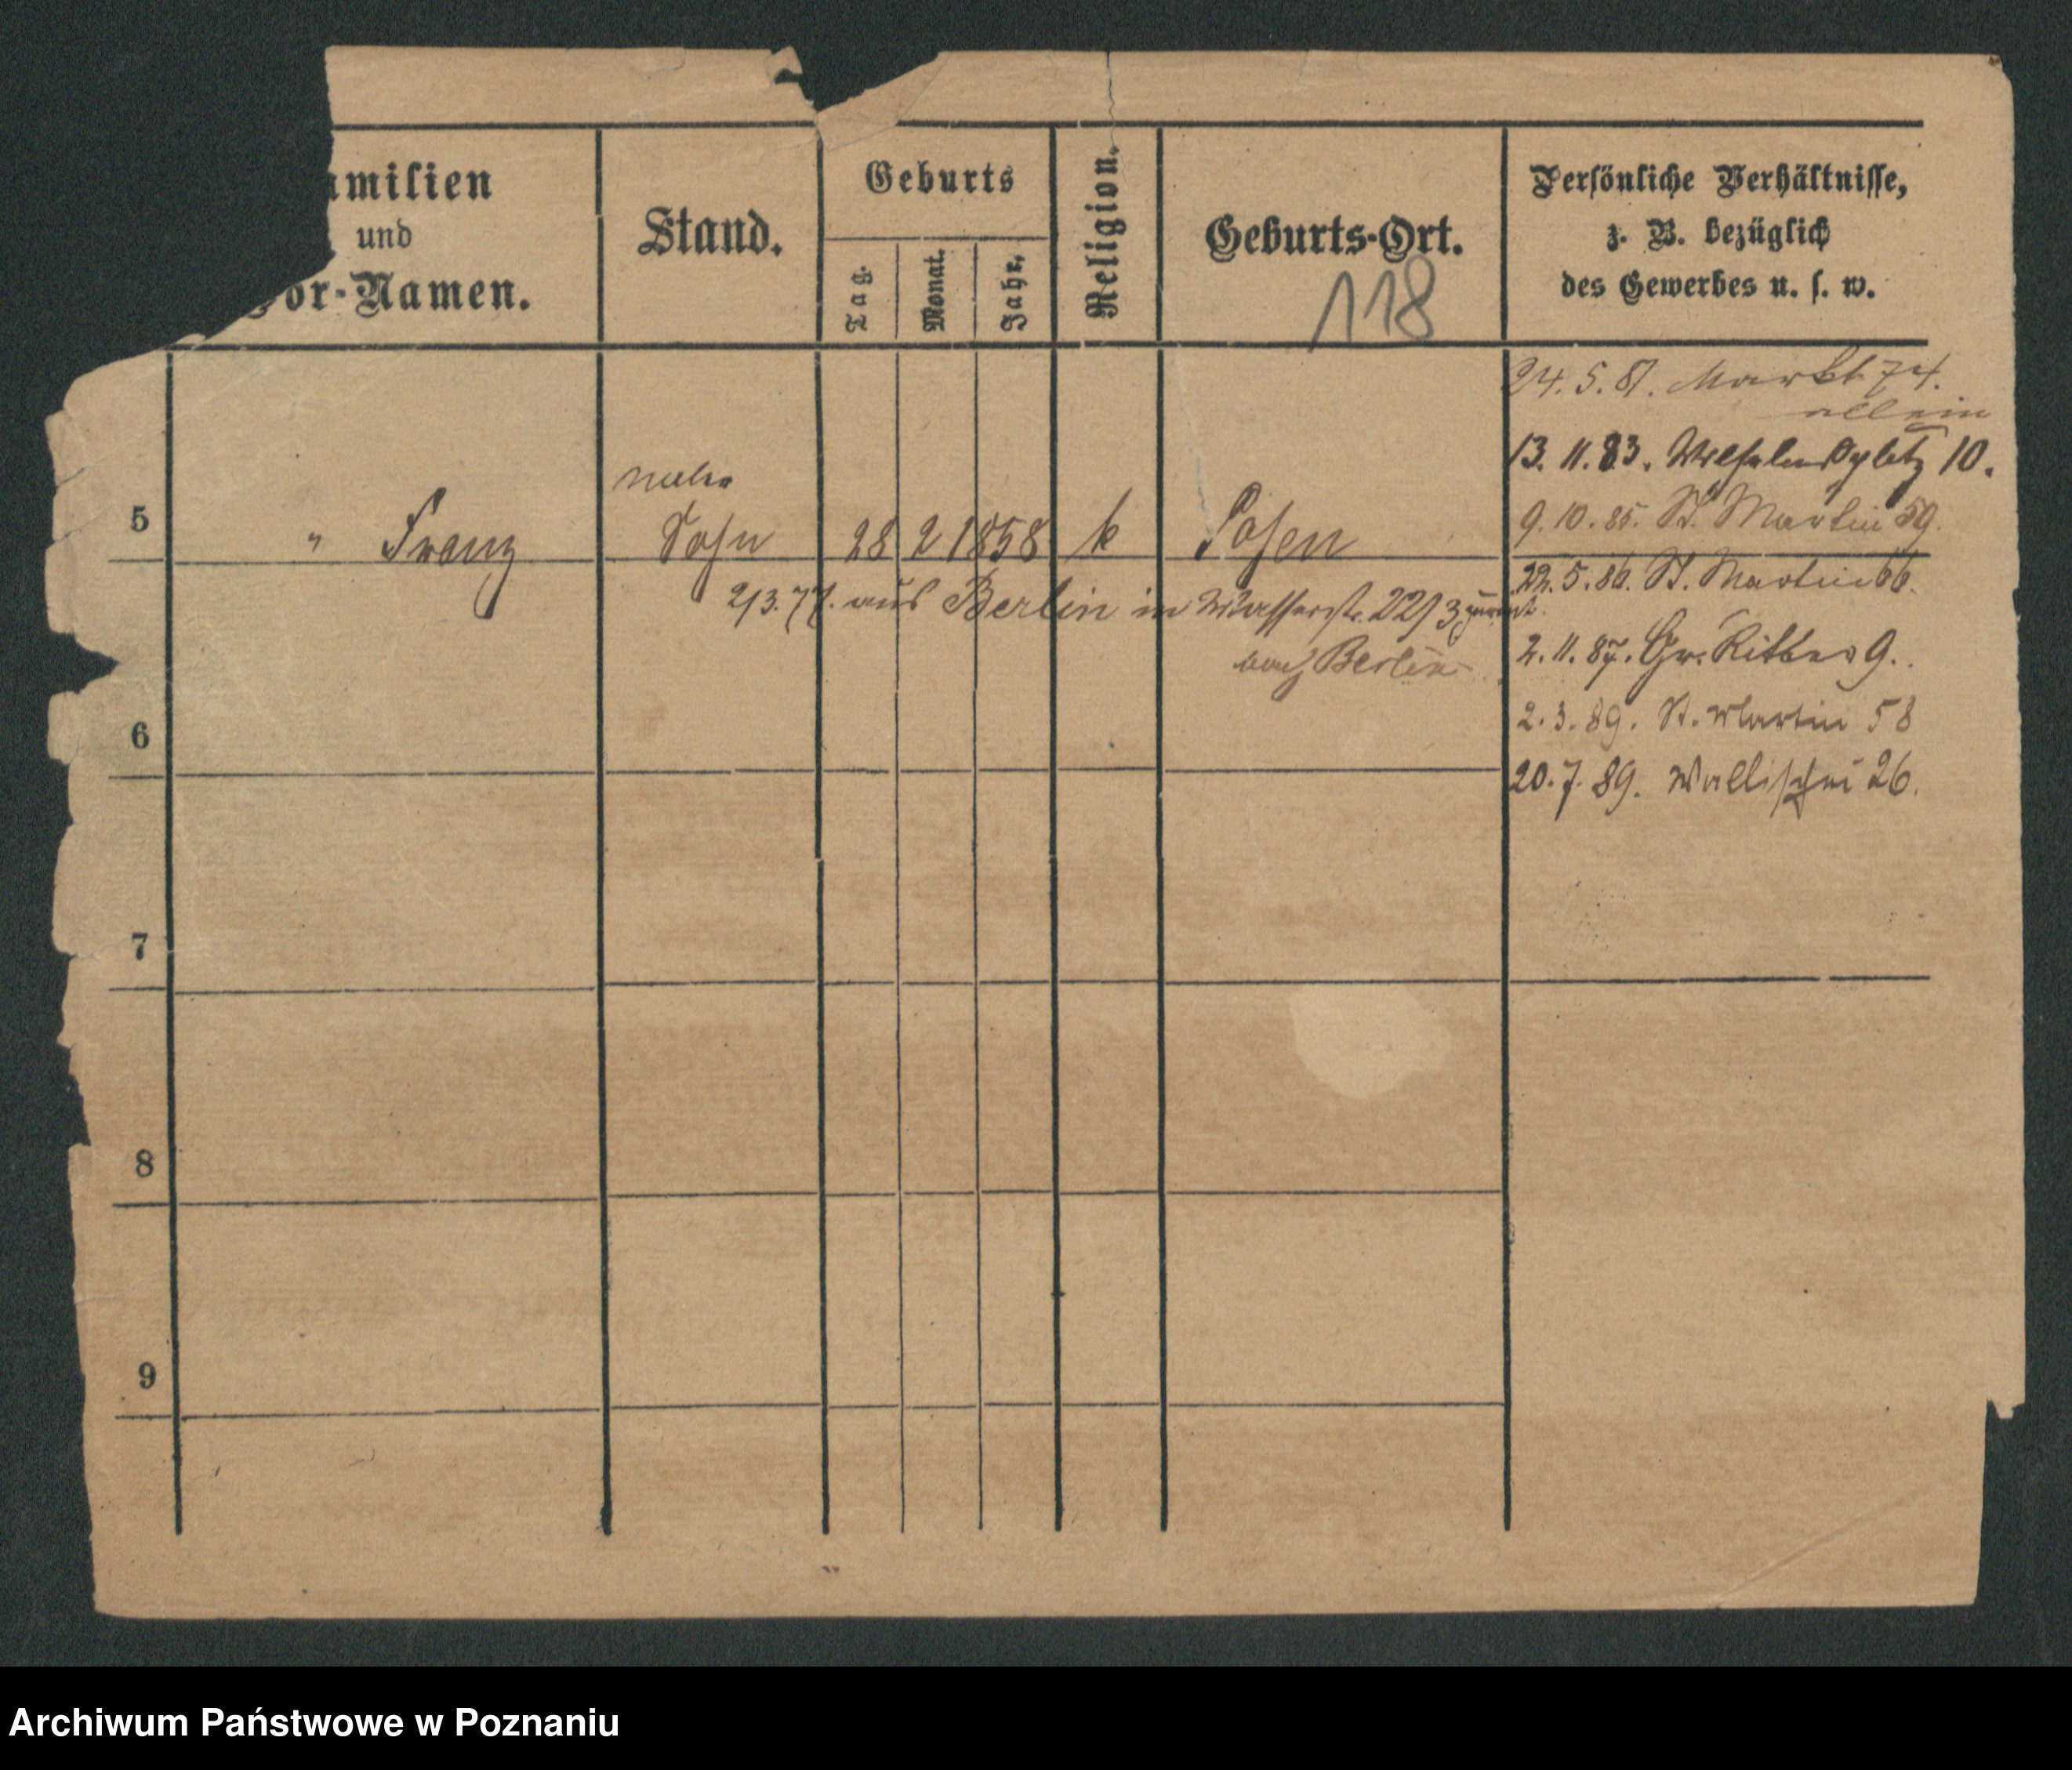 amilien
und
or-Namen.
Stand.
Geburts
Tag.
Monat.
Jahr.
Religion.
Geburts-Ort.
118
Persönliche Verhältnisse,
z. B. bezüglich
des Gewerbes u. s. w.
24. 5. 81. Markt 74.
allein
13. 11. 83. Wilhelmsplatz 10.
9. 10. 85. St. Martin 59.
22. 5. 86. St. Martin 66.
2. 11. 87. Gr. Ritter 9.
2. 3. 89. St. Martin 58
20. 7. 89. Wallischei 26.
Maler
5 " Franz Sohn 28 2 1858 k Posen
2/3. 77. aus Berlin in Wasserstr. 22/3
nach Berlin
6
7
8
9
Archiwum Państwowe w Poznaniu